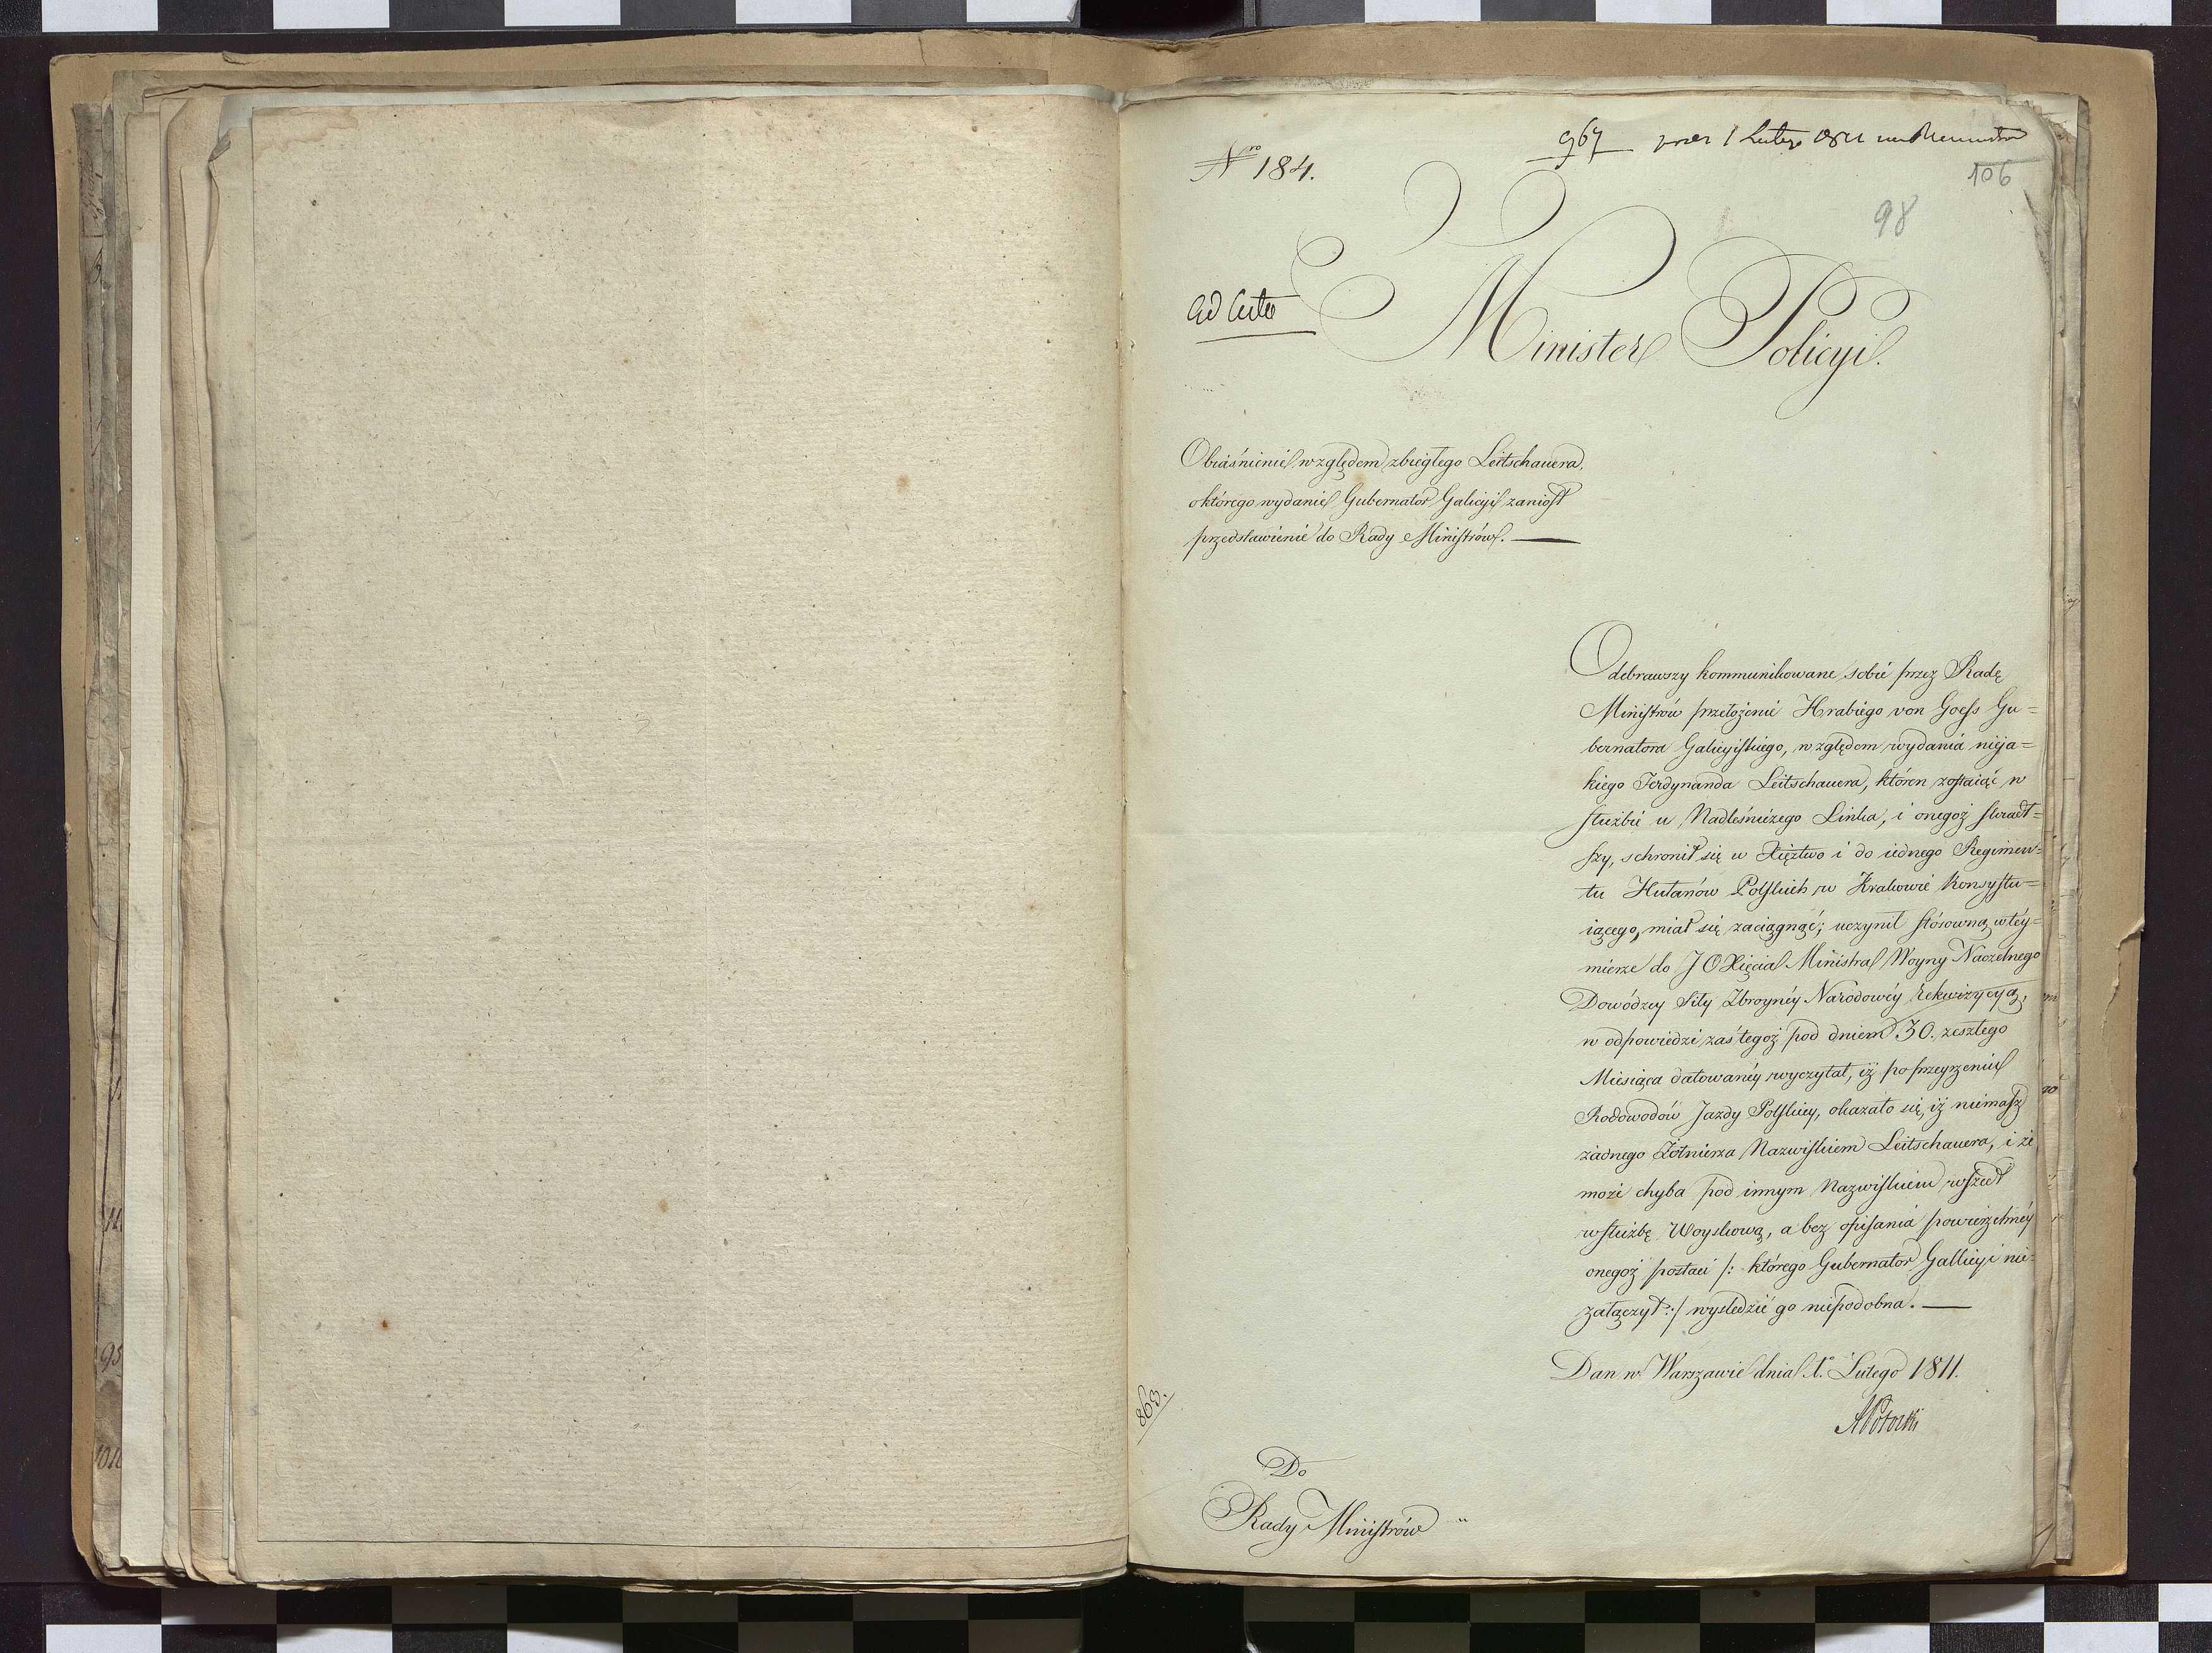 967 1 Lutego 1811
Nro 184.
106
98
ad acta
Minister Policyi.
Obiaśnienie względem zbiegłego Leitschauera,
o którego wydanie Gubernator Galicyi zaniosł
przedstawienie do Rady Ministrów. —
Odebrawszy kommunikowane sobie przez Radę
Ministrów przełożenie Hrabiego von Goess Gu=
bernatora Galicyiskiego, względem wydania nieja=
kiego Ferdynanda Leitschauera, któren zostaiąc w
służbie u Nadleśniczego Linka, i onegoż skradł=
szy, schronił się w Xięztwo i do iednego Regimen=
tu Hułanów Polskich w Krakowie konsystu=
iącego, miał się zaciągnąć; uczynił stósowną w téy=
mierze do J O Xięcia Ministra Woyny Naczelnego
Dowódzcy Siły Zbroynéy Narodowéy rekwizycyą,
w odpowiedzi zaś tegoż pod dniem 30. zeszłego
Miesiąca datowanéy wyczytał, iż po przeyrzeniu
Rodowodów Jazdy Polskiey, okazało się, iż niemasz
żadnego Żołnierza Nazwiskiem Leitschauera, i że
może chyba pod innym Nazwiskiem wszedł
w służbę Woyskową, a bez opisania powierzchnéy
onegoż postaci /: którego Gubernator Gallicyi nie=
załączył :/ wysledzić go niepodobna. —
Dan w Warszawie dnia 1o Lutego 1811.
APotocki
863.
Do
Rady Ministrów "